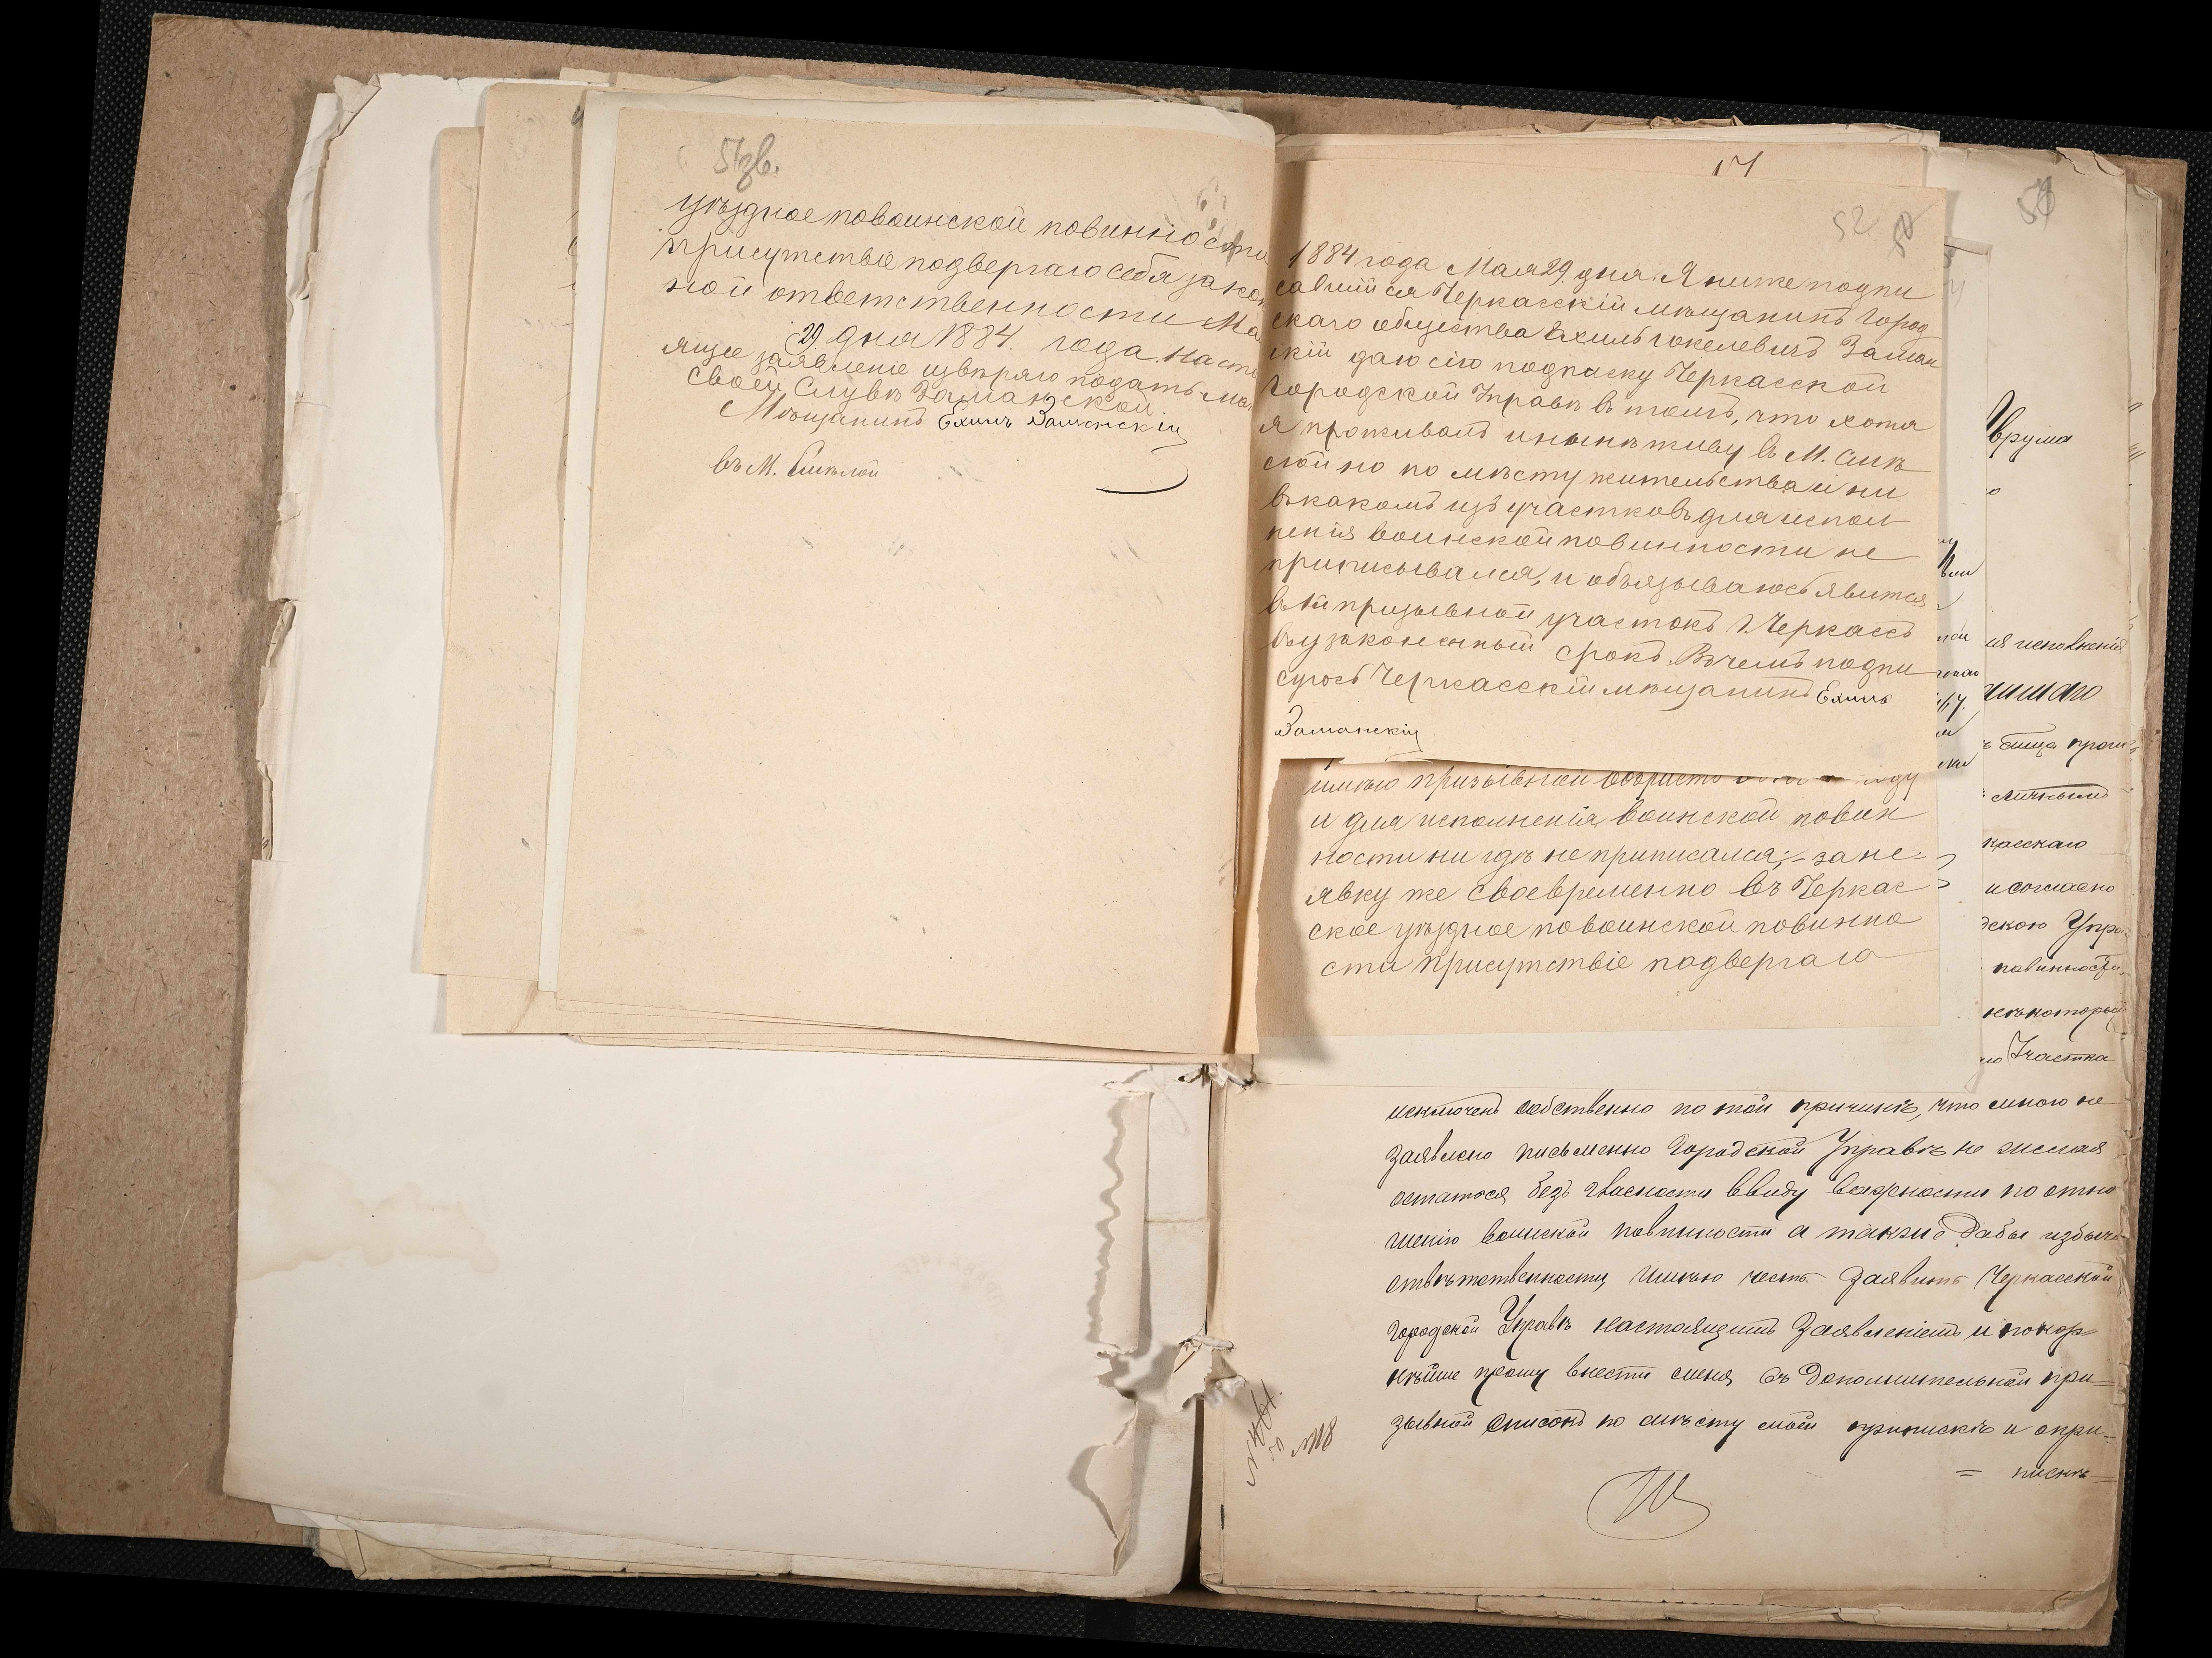 51зв.
уѣздное повоинской повинности
присутствіе подвергаю себя закон
ной ответственности Ма
29 дня 1884. года. Насто
ящее заявленіе ввѣряю подать
своей Слувѣ Заманской.
Мѣщанинъ Ехилъ Заманскій
въ М. Смѣлой
17
52
1884 года Мая 29 дня. Я ниже подпи
савшійся Черкасскій мѣщанинъ Город
скаго общества Ехиль Іокелевичъ Заман
скій даю сію подписку Черкасской
Городской Управѣ въ томъ, что хотя
я проживалъ и нынѣ живу въ М. Смѣ
лой но по мѣсту жительства и ни
въ какомъ изъ участковъ для испол
ненія воинской повинности не
приписывался, и обязываюсь явится
въ призывной участокъ г. Черкассъ
въ узаконенный срокъ. Въ чемъ подпи
суюсь Черкасскій мѣщанинъ Ехилъ
Заманскій
имѣю призывной возрастъ
и для исполненія воинской повин
ности ни гдѣ не приписался; за не-
явку же своевременно въ Черкас
ское уѣздное повоинской повинно
сти присутствіе подвергаю
58
Врума
ія исполненія
шшаго
личнымъ
касскаго
и согласно
дскою Упра
повинности,
нѣкоторый
го Участка
исключенъ собственно по той причинѣ, что мною не
заявлено письменно Городской Управѣ не желая
остатося безъ гласности ввиду важности по отно
шенію воинской повинности а также дабы избѣчь
отвѣтственности, имѣю честь заявить Черкасской
Городской Управѣ настоящимъ Заявленіемъ и покор
нѣйше прошу внести меня въ дополнительной при
зывной списокъ по мѣсту моей припискѣ и опри-
= пискѣ
№118